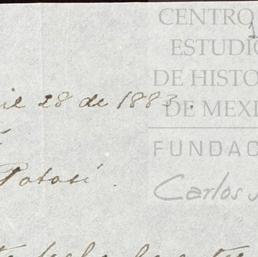 CENTRO
ESTUDIO
DE HISTO
DE MEXI
FUNDAC
Carlos
il 28 de 1883.
Potosí.